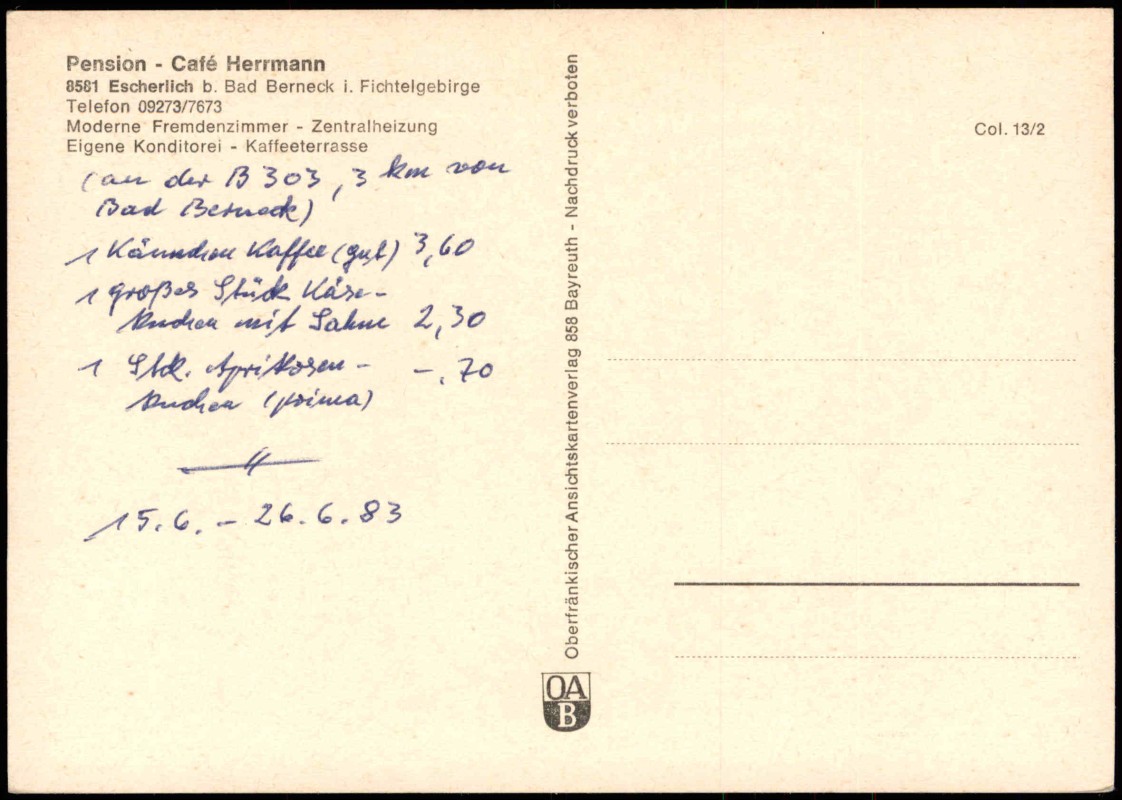 Pension - Café Herrmann
8581 Escherlich b. Bad Berneck i. Fichtelgebirge
Telefon 09273/7673
Moderne Fremdenzimmer - Zentralheizung
Eigene Konditorei - Kaffeeterrasse
(an der B 303, 3 km von
Bad Berneck)
1 Kännchen Kaffee (gut) 3,60
1 großes Stück Käse-
kuchen mit Sahne 2,30
1 Stck. Aprikosen- -.70
kuchen (prima)
15.6. - 26.6.83
Oberfränkischer Ansichtskartenverlag 858 Bayreuth - Nachdruck verboten
OA
B
Col. 13/2